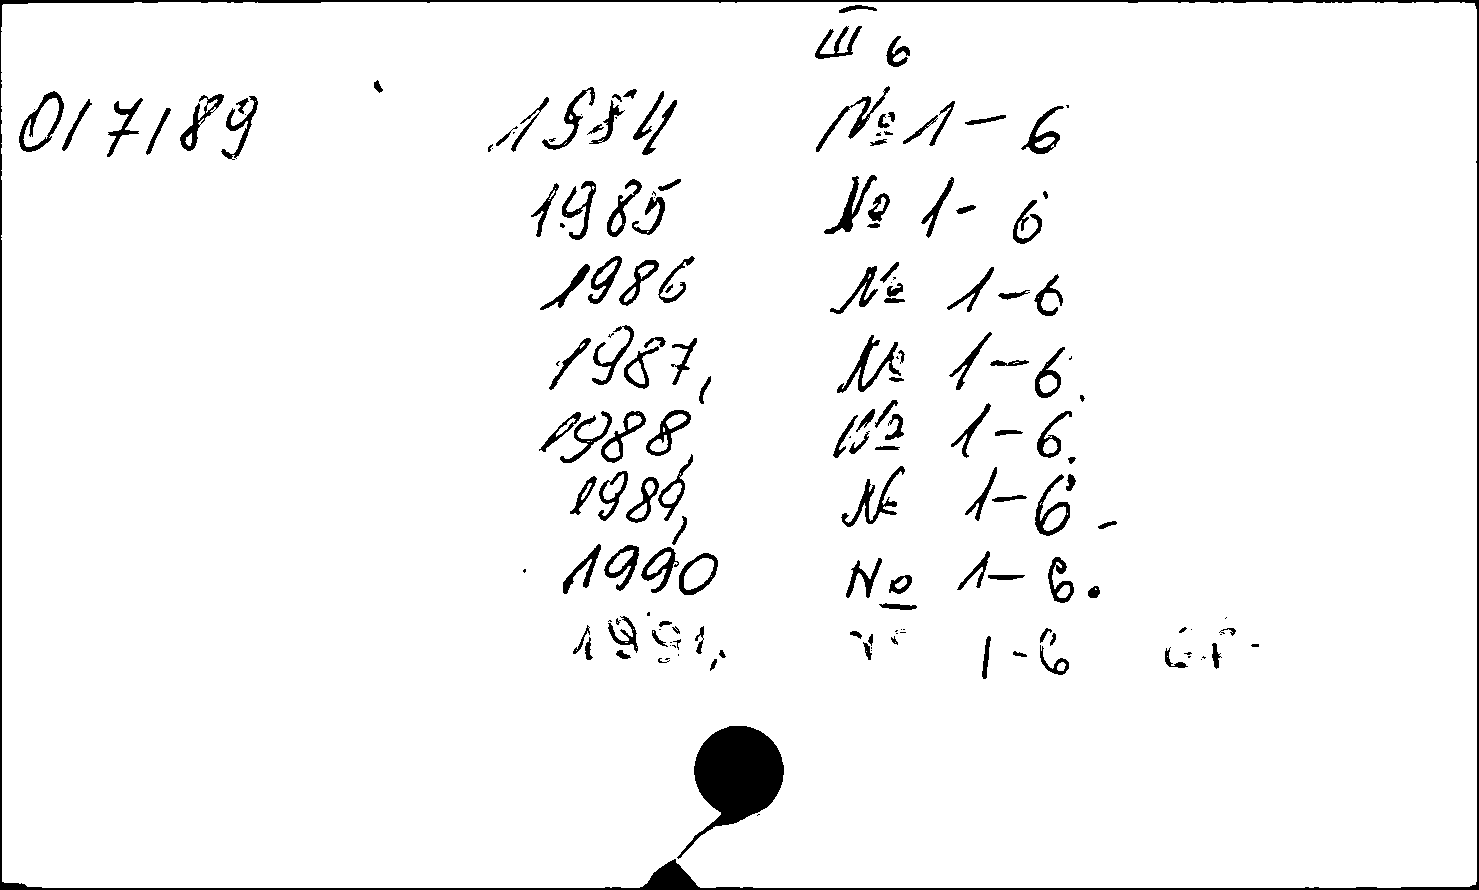 III 6
017189 1984 № 1-6
1985 № 1-6
1986 № 1-6
1987, № 1-6.
1988, № 1-6.
1989, № 1-6.-
1990 № 1-6.
1991, № 1-6